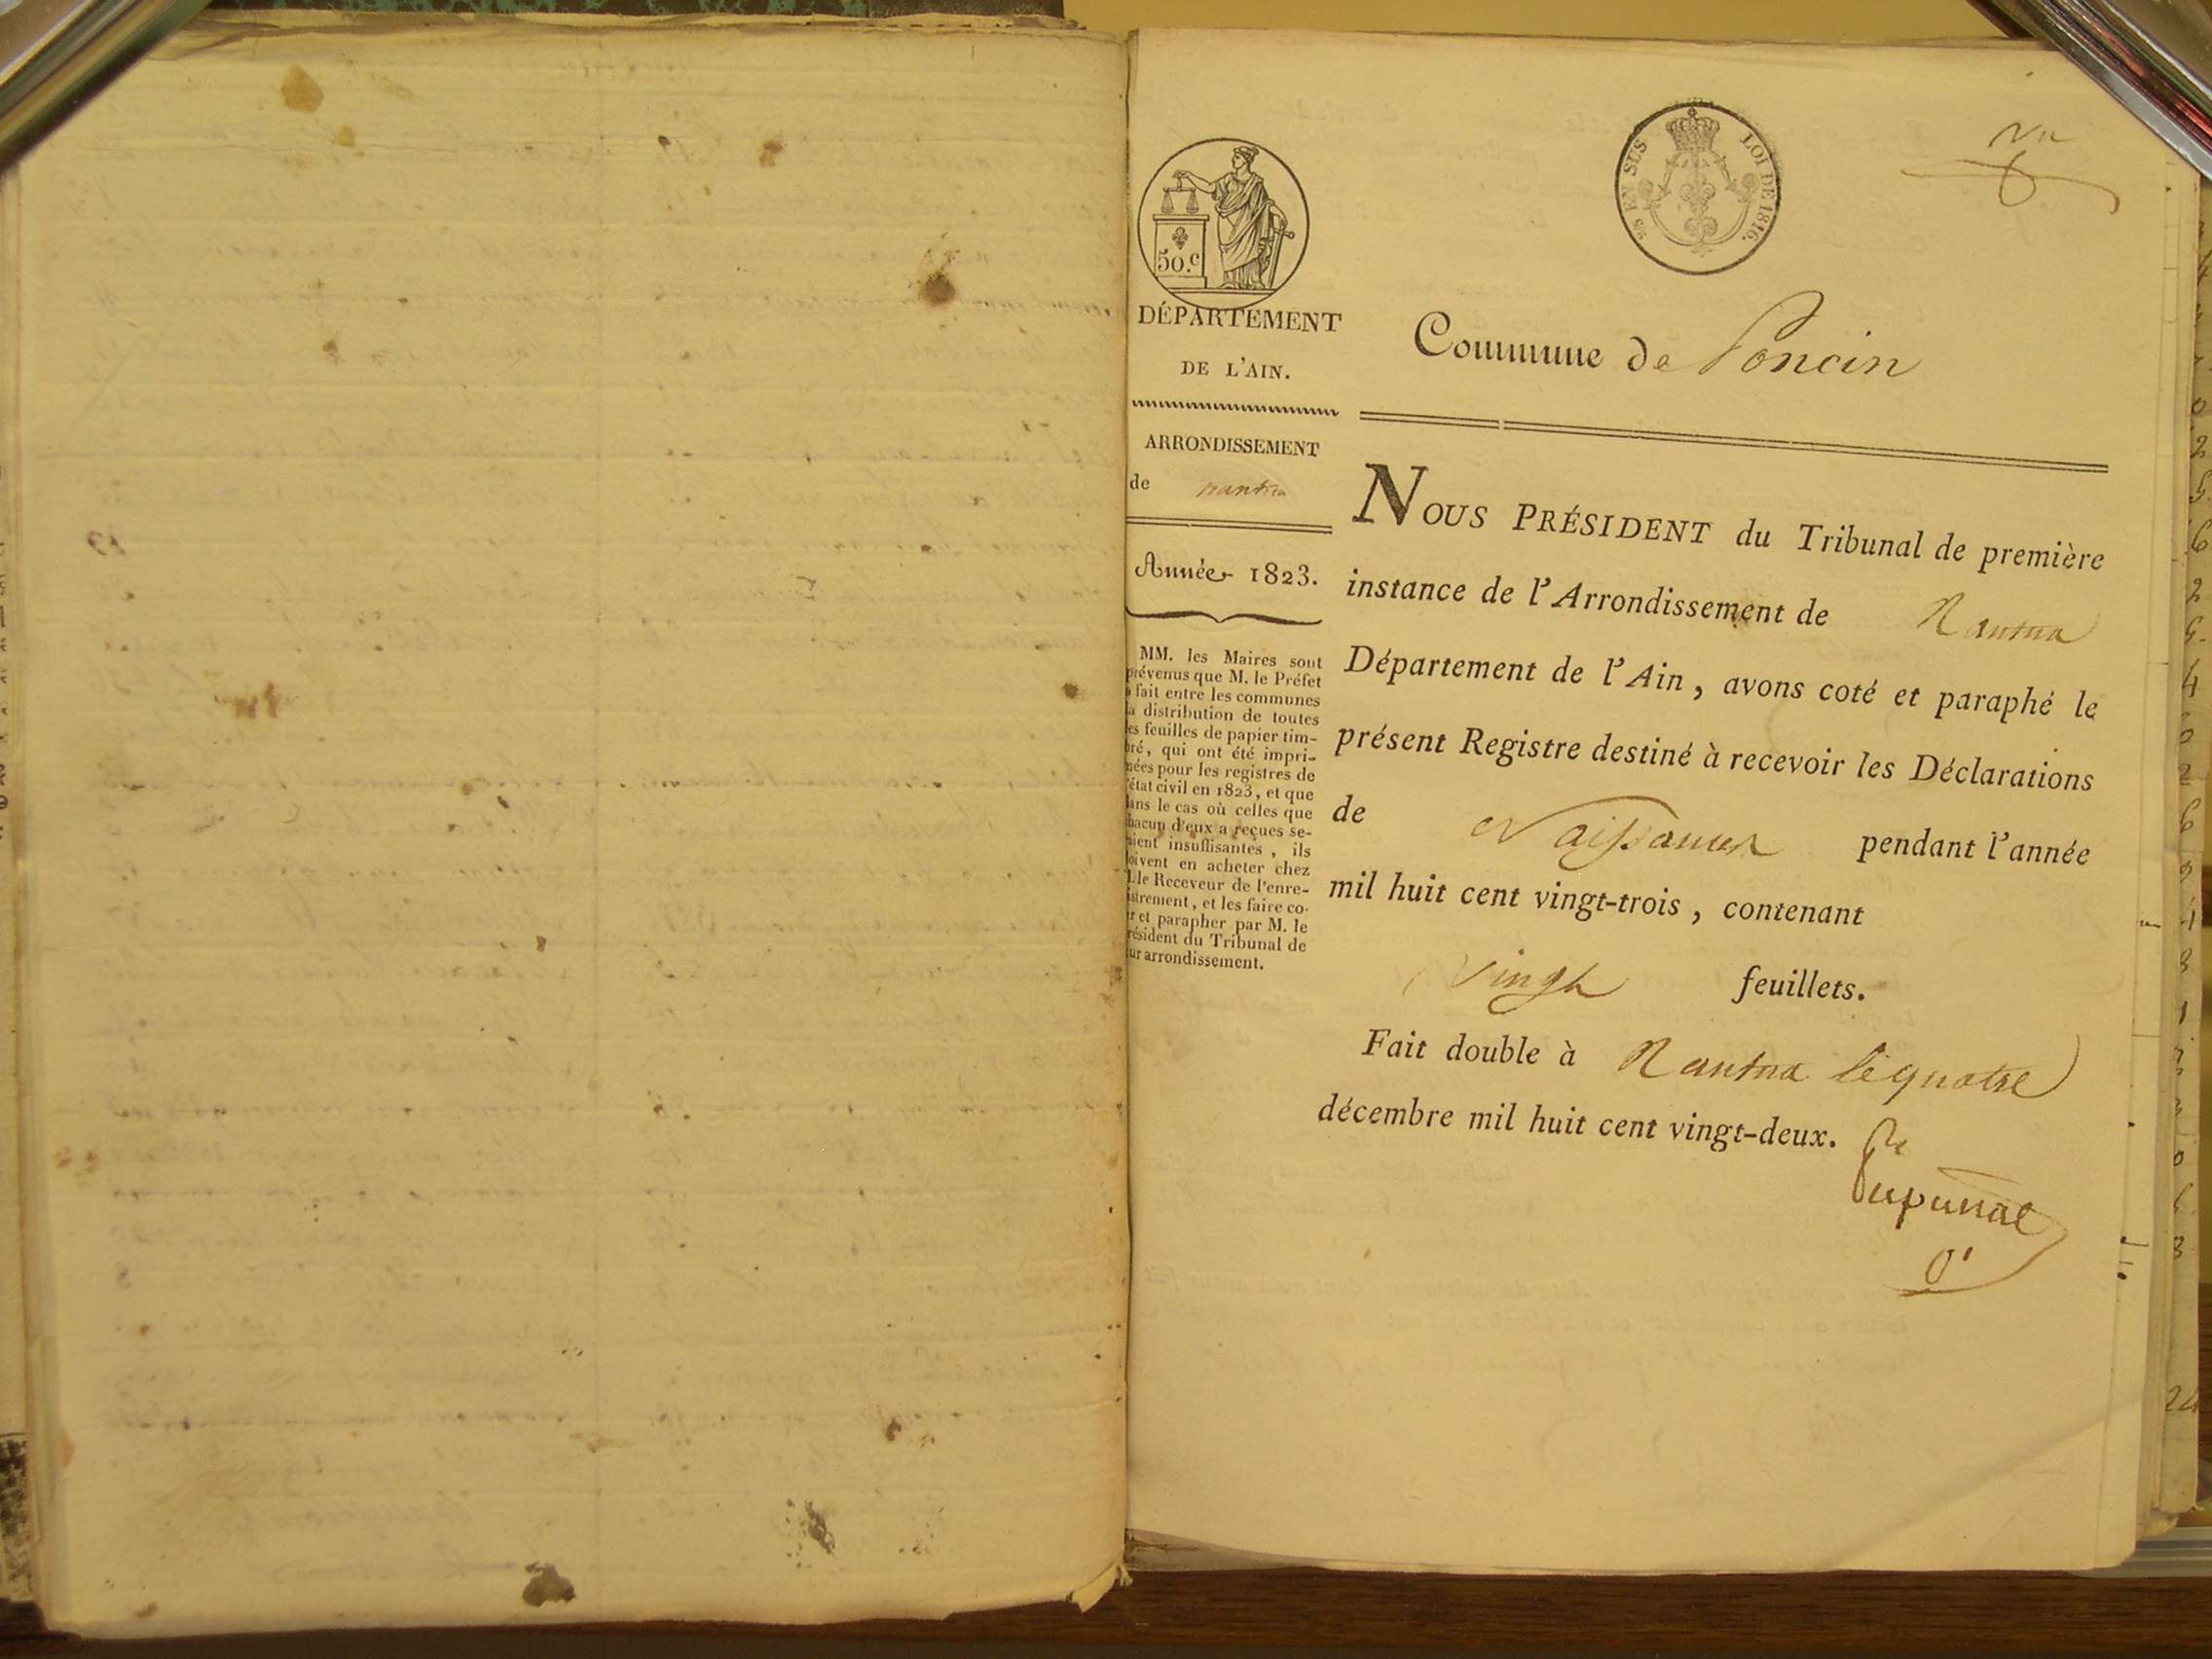 vu
50.c
EN SUS LOI DE 1816.
DÉPARTEMENT
DE L'AIN.
ARRONDISSEMENT
de nantua
Année 1823.
MM. les Maires sont
prévenus que M. le Préfet
a fait entre les communes
la distribution de toutes
les feuilles de papier tim-
bré, qui ont été impri-
mées pour les registres de
l'état civil en 1823, et que
dans le cas où celles que
chacun d'eux a reçues se-
raient insuffisantes, ils
doivent en acheter chez
M. le Receveur de l'enre-
gistrement, et les faire co-
ter et parapher par M. le
Président du Tribunal de
leur arrondissement.
Commune de Poncin
NOUS PRÉSIDENT du Tribunal de première
instance de l'Arrondissement de Nantua
Département de l'Ain, avons coté et paraphé le
présent Registre destiné à recevoir les Déclarations
de Naissances pendant l'année
mil huit cent vingt-trois, contenant
Vingt feuillets.
Fait double à Nantua le quatre
décembre mil huit cent vingt-deux.